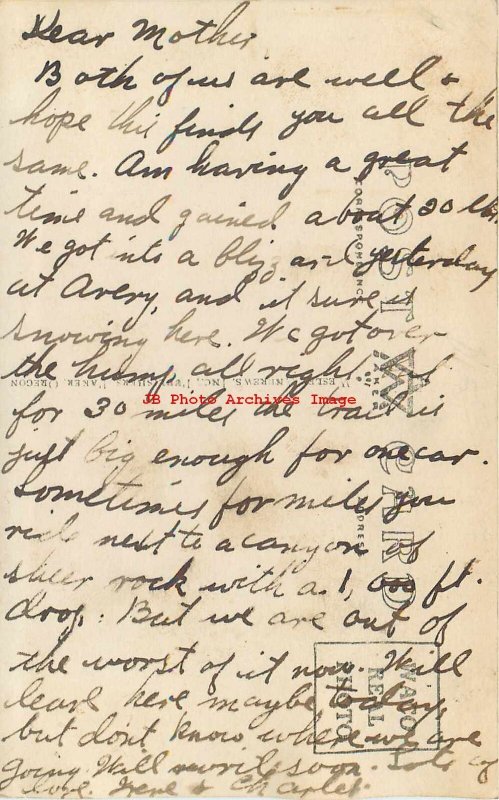 Dear Mother
Both of us are well &
hope this finds you all the
same. Am having a great
time and gained about 20 lbs.
We got into a blizzard yesterday
at Avery, and it sure is
snowing here. We got over
the hump all right and
for 30 miles the trail is
just big enough for one car.
Sometimes for miles you
ride next to a canyon of
sheer rock with a 1,000 ft.
drop. But we are out of
the worst of it now. Will
leave here maybe today,
but don't know where we are
going. Will write soon. Lots of
love. Irene & Charles.
POST CARD
CORRESPONDENCE
ADDRESS
WESLEY ANDREWS, INC., PUBLISHERS, BAKER OREGON
JB Photo Archives Image
REAL
PHOTO